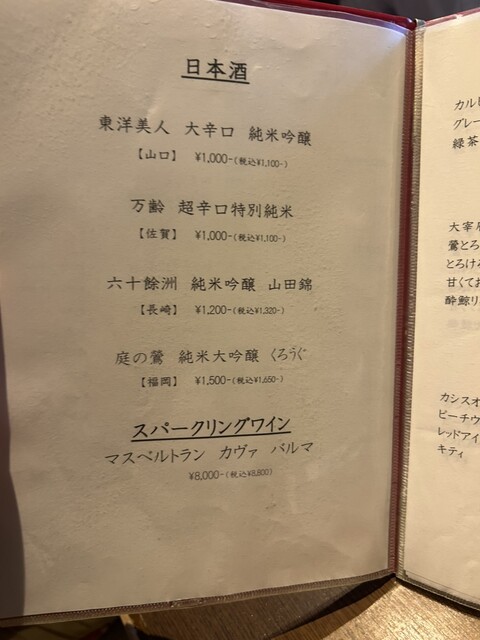 日本酒
東洋美人 大辛口 純米吟醸
【山口】 ¥1,000-(税込¥1,100-)
万齢 超辛口特別純米
【佐賀】 ¥1,000-(税込¥1,100-)
六十餘洲 純米吟醸 山田錦
【長崎】 ¥1,200-(税込¥1,320-)
庭の鶯 純米大吟醸 くろうぐ
【福岡】 ¥1,500-(税込¥1,650-)
スパークリングワイン
マスベルトラン カヴァ バルマ
¥8,000-(税込¥8,800)
カルピ
グレー
緑茶
大宰府
鶯とろ
とろける
甘くてお
酔鯨リ
カシスオ
ピーチウ
レッドアイ
キティ